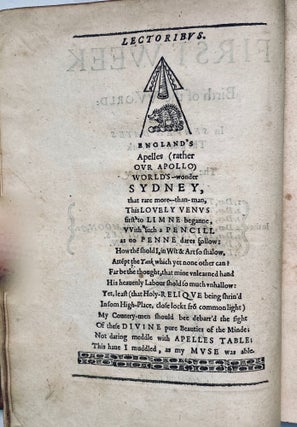 LECTORIBVS.
ENGLAND'S
Apelles (rather
OVR APOLLO)
WORLD'S-wonder
SYDNEY,
that rare more-than-man,
This LOVELY VENVS
first to LIMNE beganne,
VVith such a PENCILL
as no PENNE dares follow:
How thē should I, in Wit & Art so shallow,
Attēpt the Task which yet none other can?
Far be the thought, that mine vnlearned hand
His heauenly Labour shold so much vnhallow:
Yet, least (that Holy-RELIQVE being shrin'd
In som High-Place, close lockt frō common light)
My Countrey-men should bee debarr'd the sight
Of these DIVINE pure Beauties of the Minde;
Not daring meddle with APELLES TABLE;
This haue I muddled, as my MVSE was able.
FIRST WEEK
Birth of the WORLD: